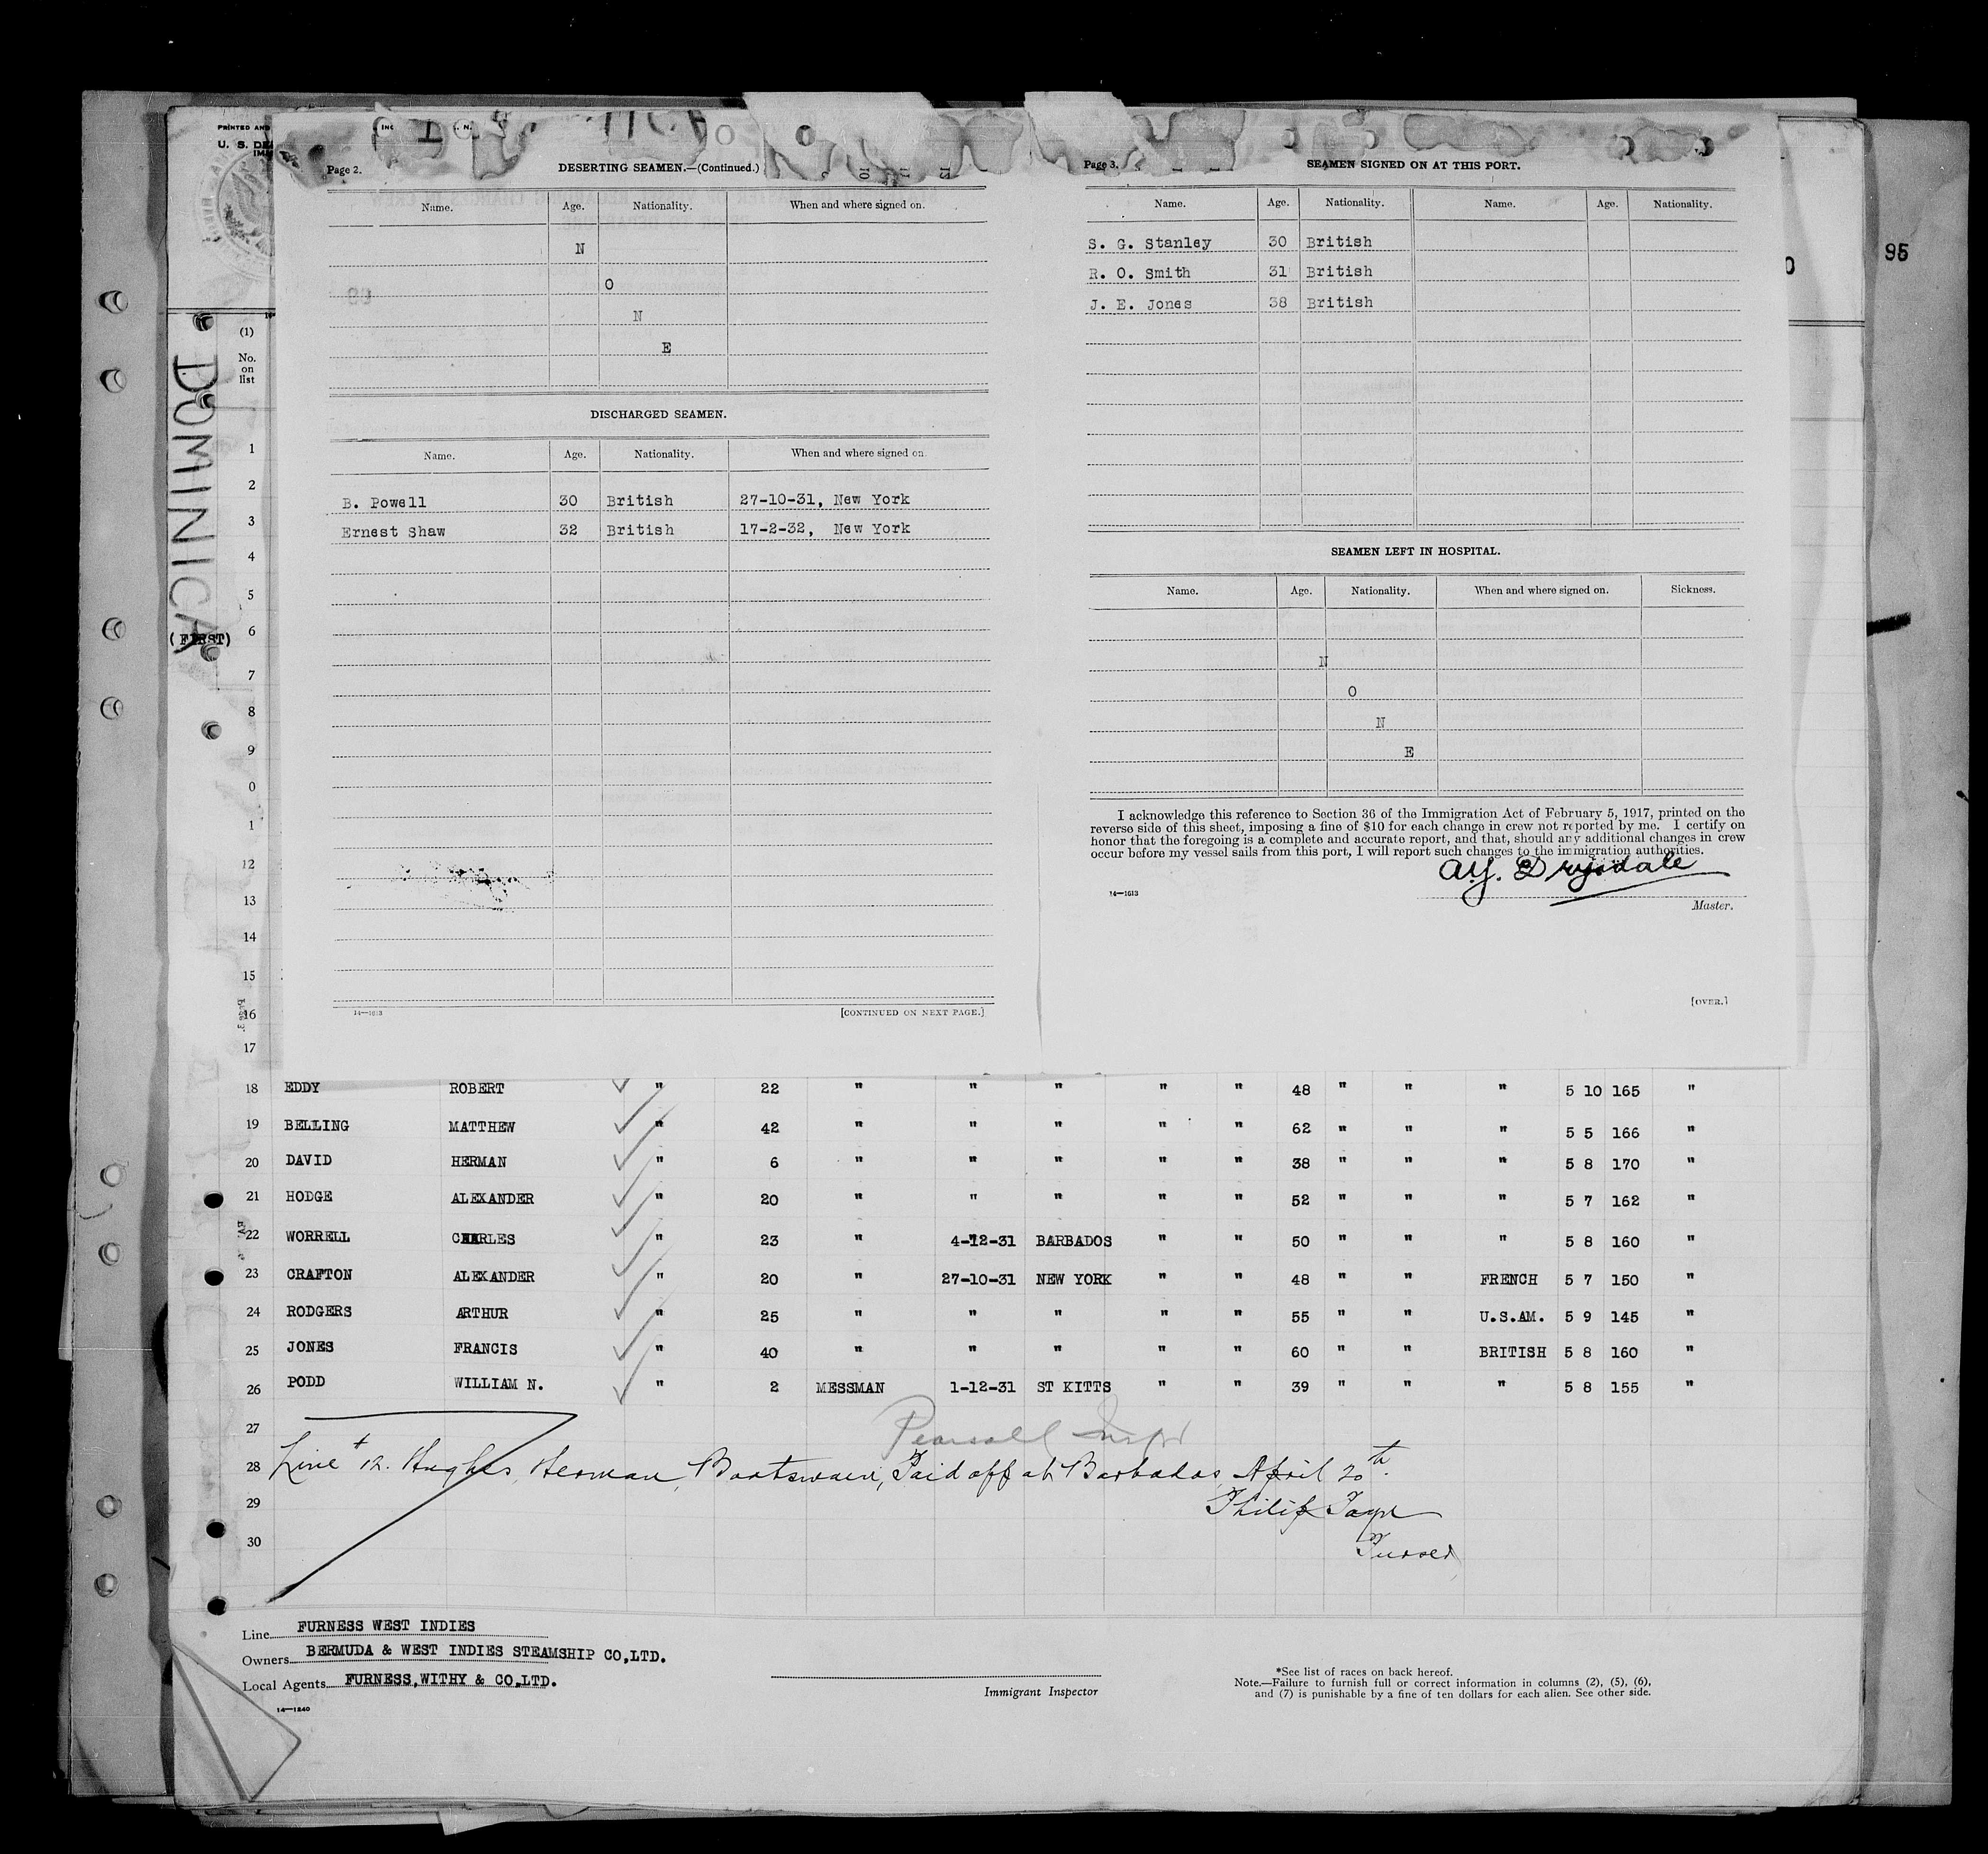 PRINTED AND
U. S. DE
95
DOMINICA
(FIRST)
(1)
No.
on
list
Page 2.
DESERTING SEAMEN.—(Continued.)
Name. Age. Nationality. When and where signed on.
N
O
N
E
DISCHARGED SEAMEN.
Name. Age. Nationality. When and where signed on.
B. Powell 30 British 27-10-31, New York
Ernest Shaw 32 British 17-2-32, New York
14—1613
[CONTINUED ON NEXT PAGE.]
Page 3.
SEAMEN SIGNED ON AT THIS PORT.
Name. Age. Nationality. Name. Age. Nationality.
S. G. Stanley 30 British
R. O. Smith 31 British
J. E. Jones 38 British
SEAMEN LEFT IN HOSPITAL.
Name. Age. Nationality. When and where signed on. Sickness.
N
O
N
E
I acknowledge this reference to Section 36 of the Immigration Act of February 5, 1917, printed on the
reverse side of this sheet, imposing a fine of $10 for each change in crew not reported by me. I certify on
honor that the foregoing is a complete and accurate report, and that, should any additional changes in crew
occur before my vessel sails from this port, I will report such changes to the immigration authorities.
Drysdale
14—1613
Master.
[OVER.]
1
2
3
4
5
6
7
8
9
0
1
12
13
14
15
16
17
18 EDDY ROBERT " 22 " " " " " 48 " " " 5 10 165 "
19 BELLING MATTHEW " 42 " " " " " 62 " " " 5 5 166 "
20 DAVID HERMAN " 6 " " " " " 38 " " " 5 8 170 "
21 HODGE ALEXANDER " 20 " " " " " 52 " " " 5 7 162 "
22 WORRELL CHARLES " 23 " 4-12-31 BARBADOS " " 50 " " " 5 8 160 "
23 CRAFTON ALEXANDER " 20 " 27-10-31 NEW YORK " " 48 " " FRENCH 5 7 150 "
24 RODGERS ARTHUR " 25 " " " " " 55 " " U.S.AM. 5 9 145 "
25 JONES FRANCIS " 40 " " " " " 60 " " BRITISH 5 8 160 "
26 PODD WILLIAM N. " 2 MESSMAN 1-12-31 ST KITTS " " 39 " " " 5 8 155 "
27
28 Line # 12. Hughes, Herman, Boatswain, Paid off at Barbados, April 20th.
29 Philip
30 Purser
Line FURNESS WEST INDIES
Owners BERMUDA & WEST INDIES STEAMSHIP CO,LTD.
Local Agents FURNESS,WITHY & CO,LTD.
14—1240
Immigrant Inspector
*See list of races on back hereof.
Note.—Failure to furnish full or correct information in columns (2), (5), (6),
and (7) is punishable by a fine of ten dollars for each alien. See other side.